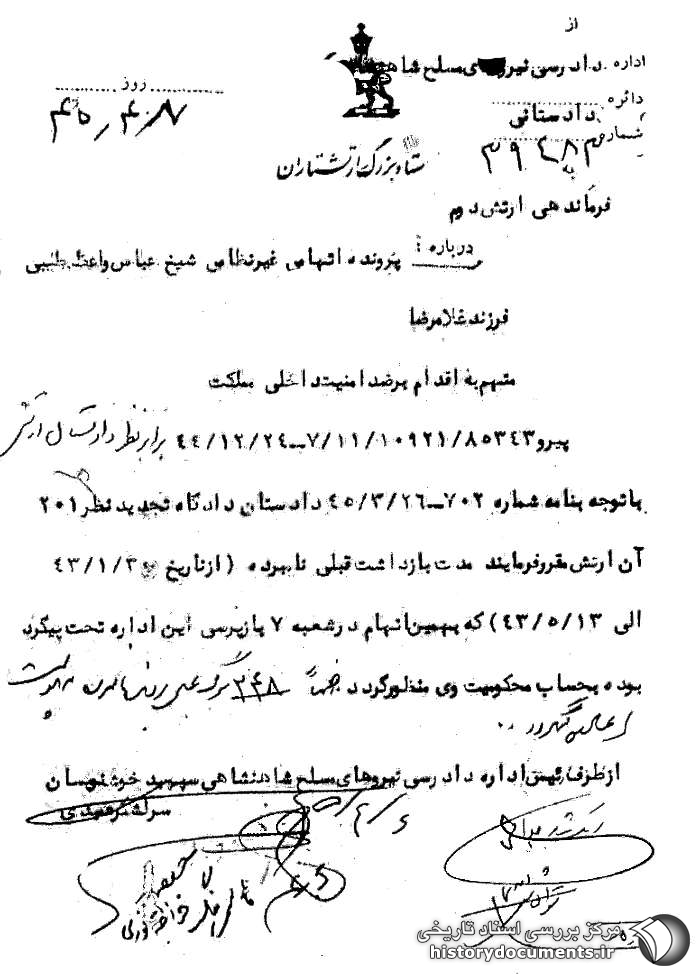 از
اداره دادرسی نیروهای مسلح شاهنشاهی
دائره دادستانی
شماره
روز
۴۵/۴/۸
ستاد بزرگ ارتشتاران
فرماندهی ارتش دوم
درباره : پرونده اتهامی غیرنظامی شیخ عباس واعظ طبسی
فرزند غلامرضا
متهم به اقدام برضد امنیت داخلی مملکت
پیرو ۷/۱۱/۱۰۹۲۱/۸۵۳۴۳ــ۴۴/۱۲/۲۴ برابر نظر دادستان ارتش
با توجه بنامه شماره ۷۰۲ــ۴۵/۳/۲۶ دادستان دادگاه تجدید نظر ۲۰۱
آن ارتش مقرر فرمایند مدت بازداشت قبلی نامبرده ( از تاریخ ۴۳/۱/۳۰
الی ۴۳/۵/۱۳ ) که بهمین اتهام در شعبه ۷ بازپرسی این اداره تحت پیگرد
بوده بحساب محکومیت وی منظور گردد ضمناً ۲۴۸ برگ عین پرونده
از طرف رئیس اداره دادرسی نیروهای مسلح شاهنشاهی سپهبد خوشنویسان
سرلشکر
۴۵/۴/۶
مرکز بررسی اسناد تاریخی
historydocuments.ir